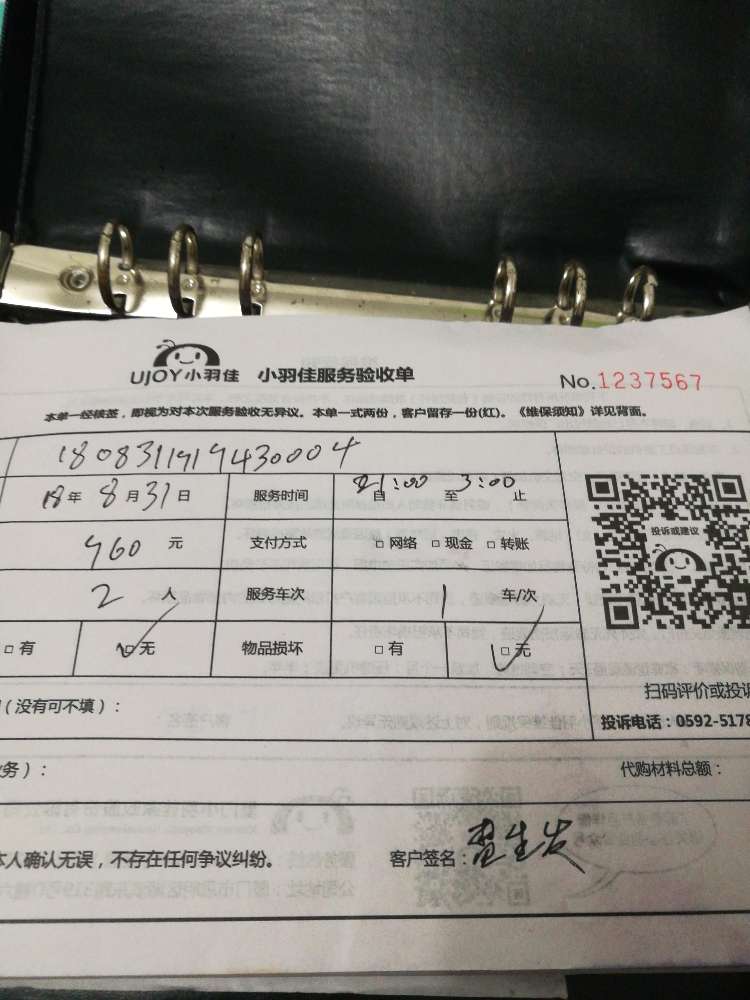 UJOY小羽佳 小羽佳服务验收单
No.1237567
本单一经核签，即视为对本次服务验收无异议。本单一式两份，客户留存一份(红)。《维保须知》详见背面。
1808311919430004
18年 8月31日 服务时间 自 21:00 至 3:00 止
460 元 支付方式 □网络 □现金 □转账
投诉或建议
2 人 服务车次 1 车/次
□有 □无 物品损坏 □有 □无
扫码评价或投诉
（没有可不填）：
投诉电话：0592-5178
务）： 代购材料总额：
本人确认无误，不存在任何争议纠纷。 客户签名：